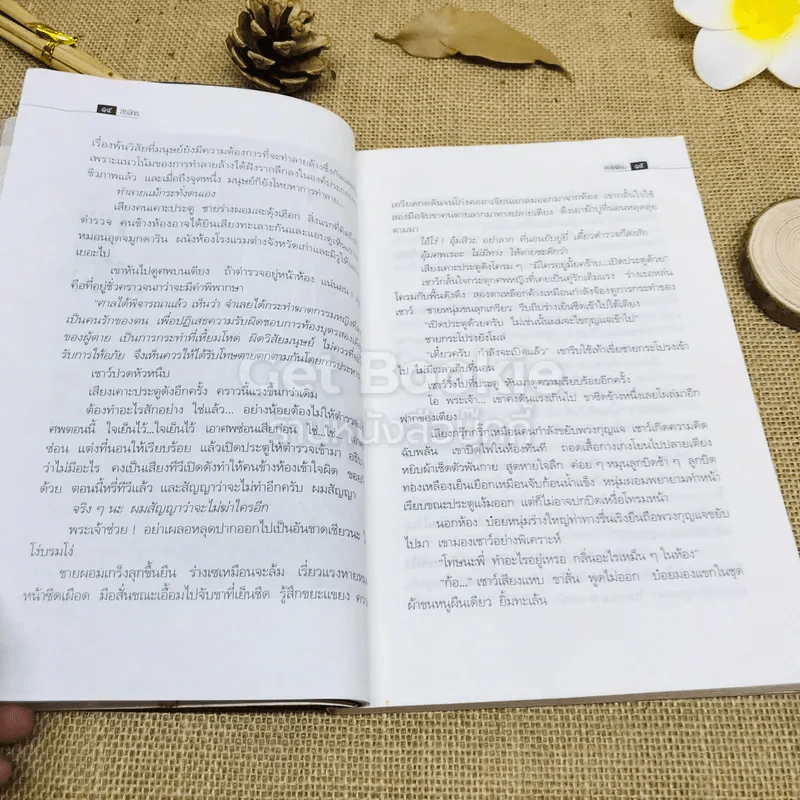 ๑๔ สรจักร
เรื่องพันวิสัยที่มนุษย์ยังมีความต้องการที่จะทำลายล้างซึ่งกันและ
เพราะแนวโน้มของการทำลายล้างได้ฝังรากลึกลงในองค์ประกอบ
ชีวภาพแล้ว และเมื่อถึงจุดหนึ่ง มนุษย์ก็ยังโหยหาการทำลาย...
ทำลายแม้กระทั่งตนเอง
เสียงคนเคาะประตู ชายร่างผอมสะดุ้งเฮือก สิ่งแรกที่คิดถึง
ตำรวจ คนข้างห้องอาจได้ยินเสียงทะเลาะกันและแอบดูเห็น
หมอนอุดจมูกดาริน ผนังห้องโรงแรมต่างจังหวัดเก่าและมีรูให้
เยอะไป
เขาหันไปดูศพบนเตียง ถ้าตำรวจอยู่หน้าห้อง แน่นอน
คือที่อยู่ชั่วคราวจนกว่าจะมีคำพิพากษา
“ศาลได้พิจารณาแล้ว เห็นว่า จำเลยได้กระทำฆาตกรรมหญิง
เป็นคนรักของตน เพื่อปฏิเสธความรับผิดชอบการท้องบุตรสองเดือน
ของผู้ตาย เป็นการกระทำที่เหี้ยมโหด ผิดวิสัยมนุษย์ ไม่ควรที่จะ
รับการให้อภัย จึงเห็นควรให้ได้รับโทษตายตกตามกันโดยการประหาร
เชาว์ปวดหัวหนึบ
เสียงเคาะประตูดังอีกครั้ง คราวนี้แรงขึ้นกว่าเดิม
ต้องทำอะไรสักอย่าง ใช่แล้ว... อย่างน้อยต้องไม่ให้ตำรวจ
ศพตอนนี้ ใจเย็นไว้...ใจเย็นไว้ เอาศพซ่อนเสียก่อน ใช่...ใช่...
ซ่อน แต่งที่นอนให้เรียบร้อย แล้วเปิดประตูให้ตำรวจเข้ามา
ว่าไม่มีอะไร คงเป็นเสียงทีวีเปิดดังทำให้คนข้างห้องเข้าใจผิด
ด้วย ตอนนี้หรี่ทีวีแล้ว และสัญญาว่าจะไม่ทำอีกครับ ผมสัญญา
จริง ๆ นะ ผมสัญญาว่าจะไม่ฆ่าใครอีก
พระเจ้าช่วย ! อย่าเผลอหลุดปากออกไปเป็นอันขาดเชียวนะ
โง่บรมโง่
ชายผอมเกร็งลุกขึ้นยืน ร่างเซเหมือนจะล้ม เรี่ยวแรงหาย
หน้าซีดเผือด มือสั่นขณะเอื้อมไปจับขาที่เย็นชืด รู้สึกขยะแขยง
๑๕
เครียดกดดันจนโก่งคออาเจียนเอาลมออกมาจากท้อง เขากลั้นใจใช้
สองมือจับขาคนตายลากมาทางปลายเตียง ดึงเอาผ้าปูที่นอนหลุดลุ่ย
ตามมา
ไอ้โง่ ! อุ้มสิวะ อย่าลาก ที่นอนยับยู่ยี่ เดี๋ยวตำรวจก็สงสัย
อุ้มศพเรอะ ไม่มีทาง ให้ตายซะดีกว่า
เสียงเคาะประตูดังโครม ๆ “มีใครอยู่มั้ยคร้าบ...เปิดประตูด้วย”
เชาว์กลั้นใจกระตุกศพหญิงที่เคยเป็นคู่รักเต็มแรง ร่างเธอหล่น
โครมกับพื้นดังตึง สองตาเหลือกค้างเหมือนกำลังจ้องดูการกระทำของ
เชาว์ ชายหนุ่มขนลุกเกรียว รีบถีบร่างเย็นชืดเข้าไปใต้เตียง
“เปิดประตูด้วยครับ ไม่เช่นนั้นผมจะไขกุญแจเข้าไป”
ชายกระโปรงยังโผล่
“เดี๋ยวครับ กำลังจะเปิดแล้ว” เขารีบใช้เท้าเขี่ยชายกระโปรงเข้า
ไป ไม่มีเวลาเก็บที่นอน
เชาว์วิ่งไปที่ประตู หันมาดูความเรียบร้อยอีกครั้ง
โอ พระเจ้า... เขาคงดันแรงเกินไป ขาซีดข้างหนึ่งเลยโผล่มาอีก
ฟากของเตียง
เสียงกรุ๊กกริ๊กเหมือนคนกำลังขยับพวงกุญแจ เชาว์เกิดความคิด
ฉับพลัน เขาปิดไฟในห้องทันที ถอดเสื้อกางเกงโยนไปปลายเตียง
หยิบผ้าเช็ดตัวพันกาย สูดหายใจลึก ค่อย ๆ หมุนลูกบิดช้า ๆ ลูกบิด
ทองเหลืองเย็นเยือกเหมือนจับก้อนน้ำแข็ง หนุ่มผอมพยายามทำหน้า
เรียบขณะประตูแง้มออก แต่ก็ไม่อาจปกปิดเหงื่อโทรมหน้า
นอกห้อง บ๋อยหนุ่มร่างใหญ่ท่าทางรื่นเริงยืนถือพวงกุญแจขยับ
ไปมา เขามองเชาว์อย่างพิเคราะห์
“โทษนะพี่ ทำอะไรอยู่เหรอ กลิ่นอะไรเหม็น ๆ ในห้อง”
“ก้อ...” เชาว์เสียงแหบ ขาสั่น พูดไม่ออก บ๋อยมองแขกในชุด
ผ้าขนหนูผืนเดียว ยิ้มทะเล้น
Get Bookie